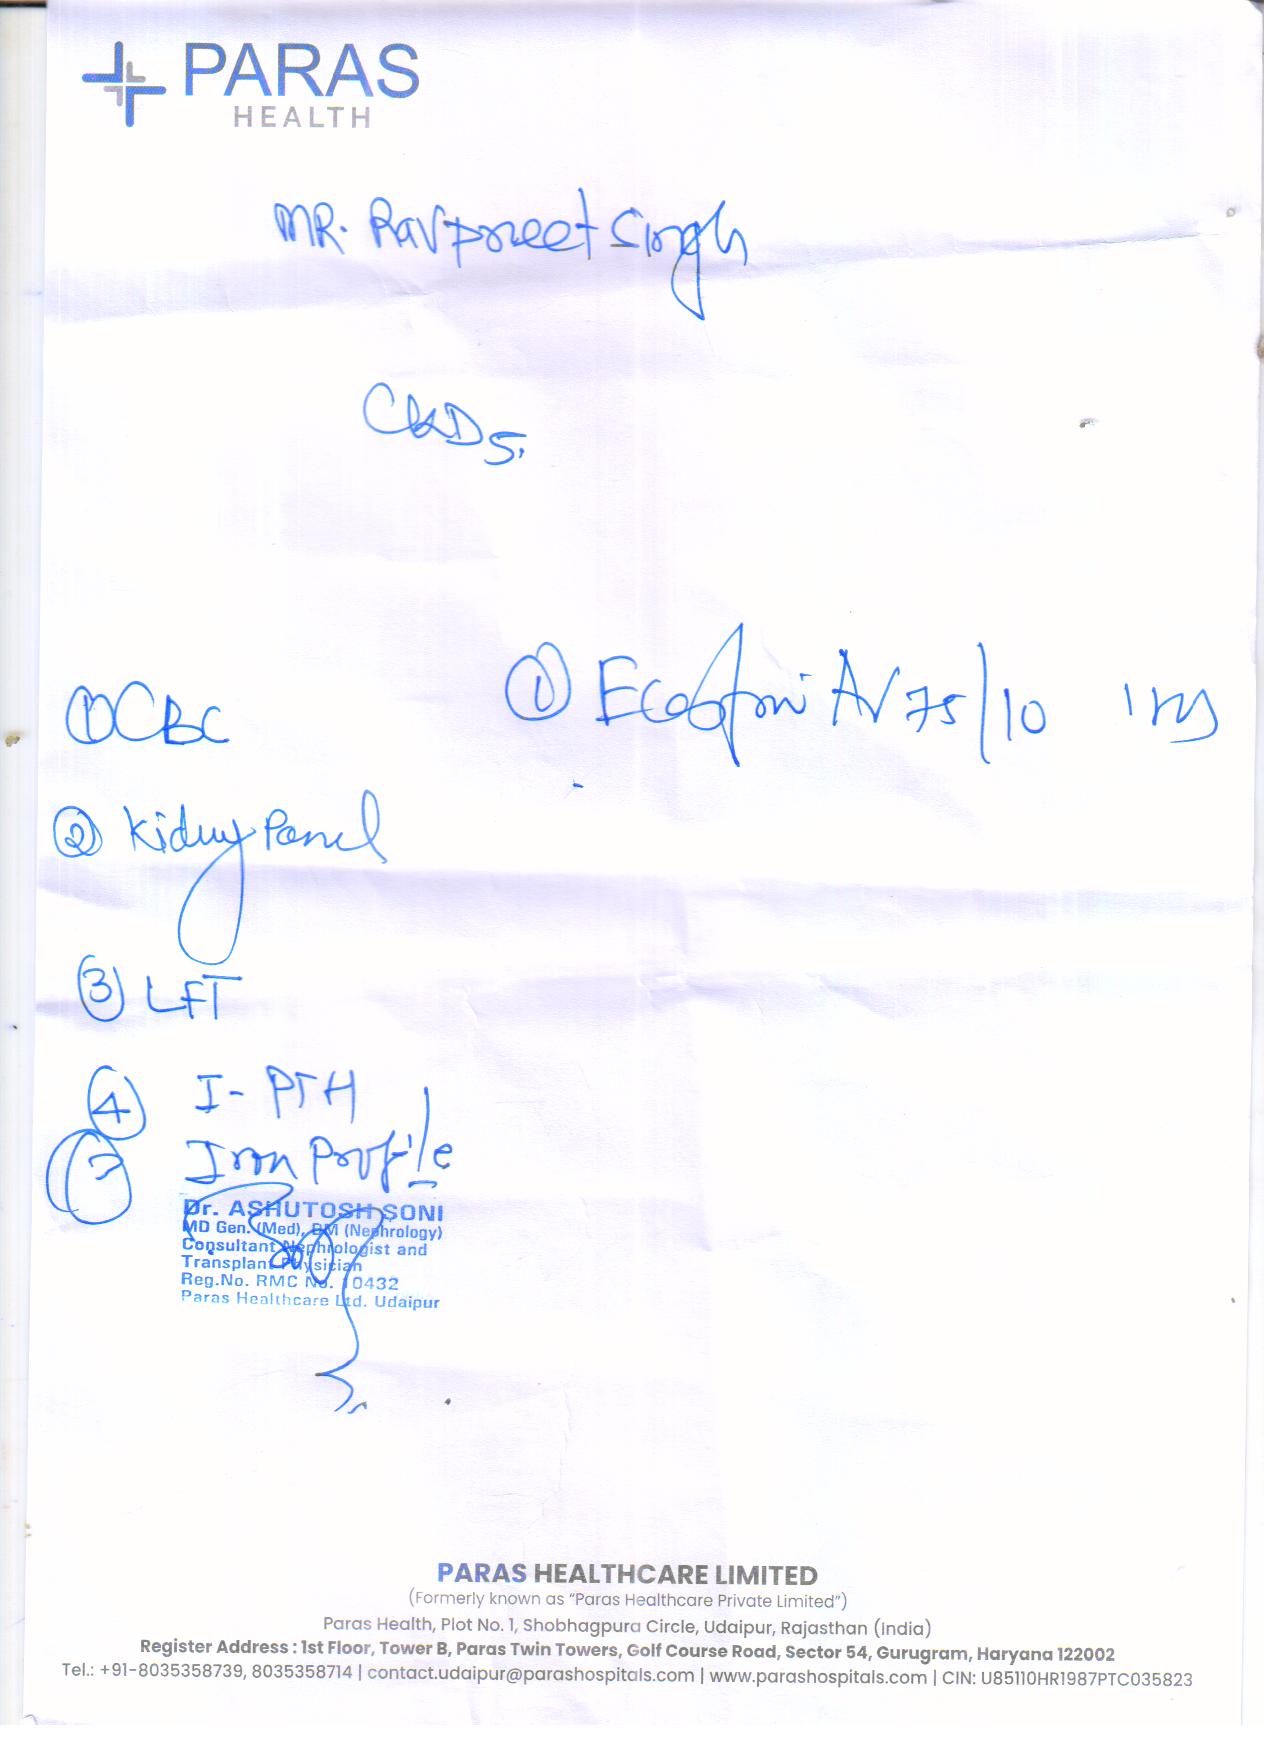 PARAS
HEALTH
MR. Ravpreet Singh
CKD 5.
① CBC
① Ecosprin AV 75/10
② Kidney Panel
③ LFT
④ I-PTH
Iron Profile
Dr. ASHUTOSH SONI
MD Gen. (Med), DM (Nephrology)
Consultant Nephrologist and
Transplant Physician
Reg.No. RMC No. 10432
Paras Healthcare Ltd. Udaipur
PARAS HEALTHCARE LIMITED
(Formerly known as “Paras Healthcare Private Limited”)
Paras Health, Plot No. 1, Shobhagpura Circle, Udaipur, Rajasthan (India)
Register Address : 1st Floor, Tower B, Paras Twin Towers, Golf Course Road, Sector 54, Gurugram, Haryana 122002
Tel.: +91-8035358739, 8035358714 | contact.udaipur@parashospitals.com | www.parashospitals.com | CIN: U85110HR1987PTC035823